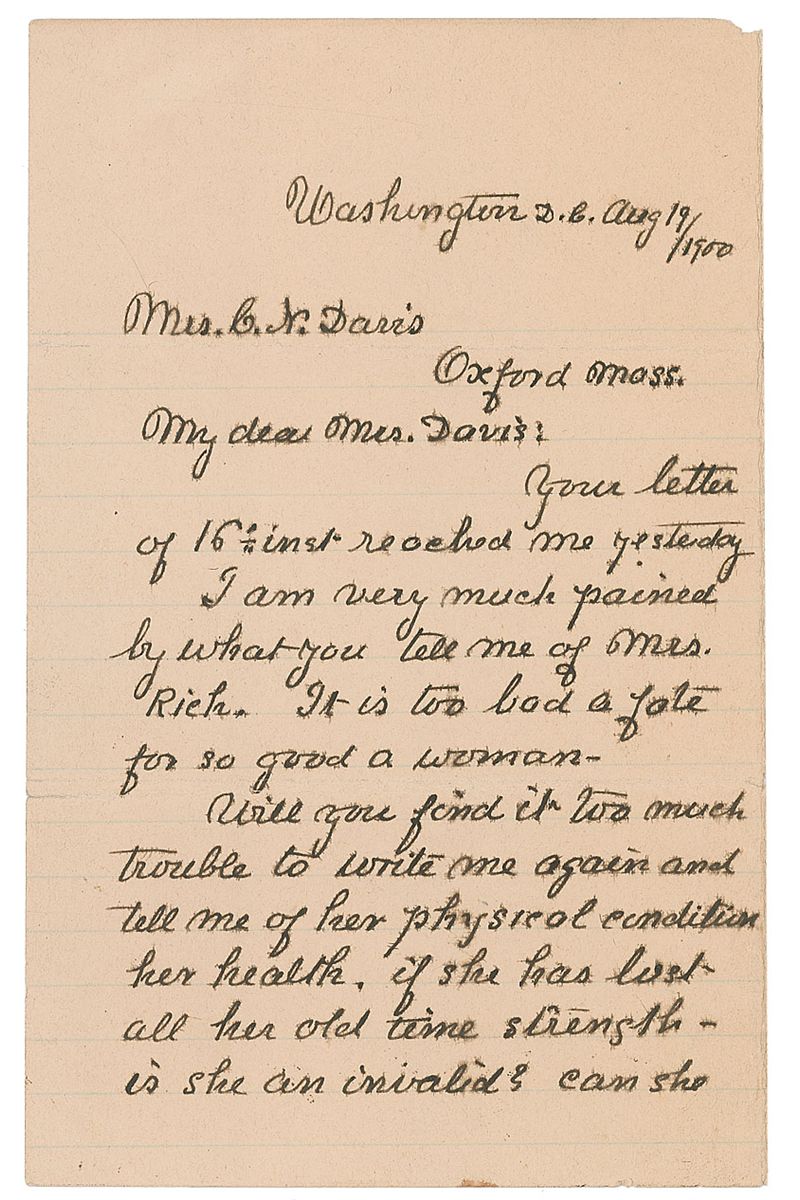 Washington D.C. Aug 19/
/1900
Mrs. C. N. Davis
Oxford Mass.
My dear Mrs. Davis:
Your letter
of 16th inst reached me yesterday
I am very much pained
by what you tell me of Mrs.
Rich. It is too bad a fate
for so good a woman-
Will you find it too much
trouble to write me again and
tell me of her physical condition
her health, if she has lost
all her old time strength -
is she an invalid? can she